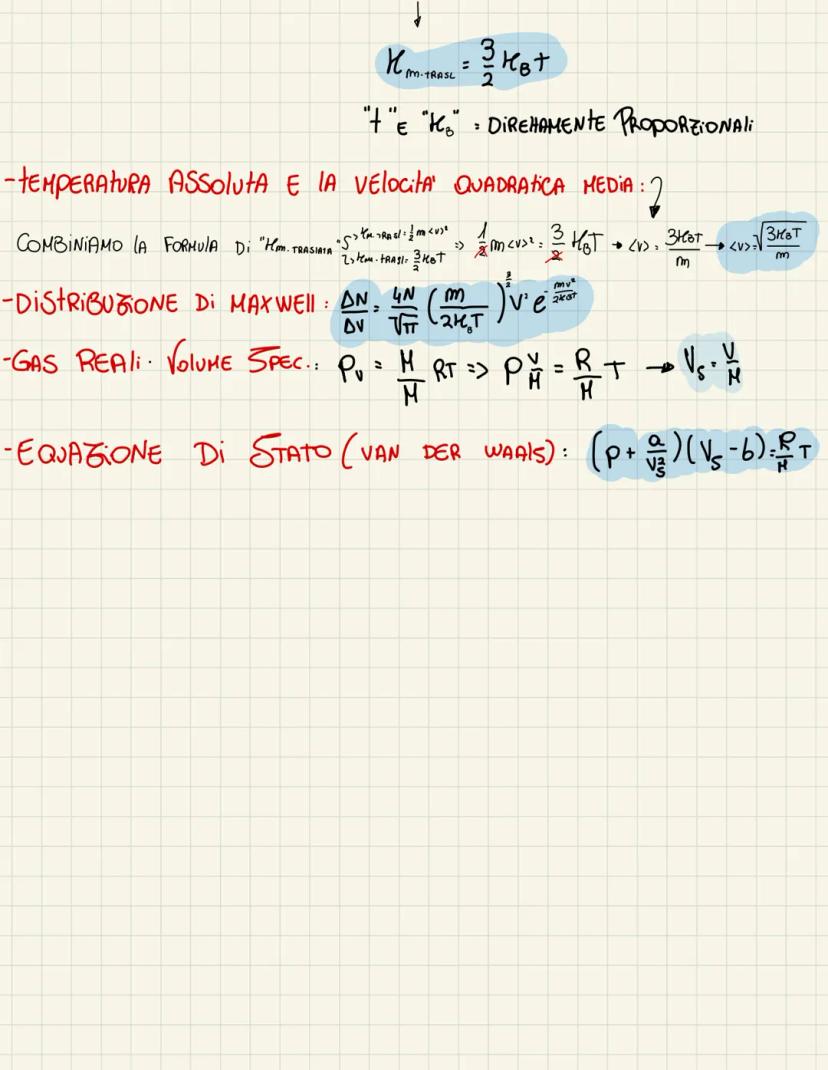 ↓
K m.TRASL = 3/2 KB t
"t" E "KB" = DIRETTAMENTE PROPORZIONALI
-TEMPERATURA ASSOLUTA E LA VELOCITA' QUADRATICA MEDIA:
COMBINIAMO LA FORMULA DI "Km.TRASLATA" 1> Km.TRASL = 1/2 m<v>² 2> Km.TRASL = 3/2 KBT => 1/2 m<v>² = 3/2 KBT → <v> = 3KBT/m → <v> = √(3KBT/m)
-DISTRIBUZIONE DI MAXWELL: ΔN/ΔV = 4N/√π (m/2KBT)^3/2 V² e^-mv²/2KBT
-GAS REALI. VOLUME SPEC.: Pv = M/M RT => P V/M = R/M T → Vs = V/M
-EQUAZIONE DI STATO (VAN DER WAALS): (P + a/Vs²)(Vs - b) = R/M T